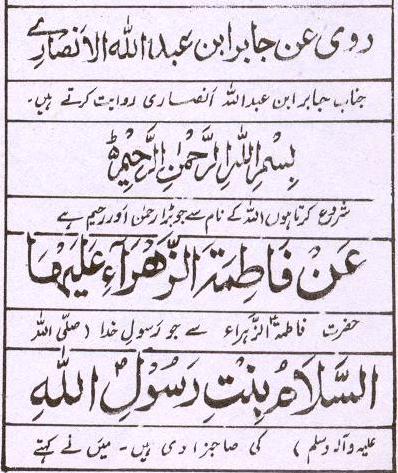 روی عن جابر ابن عبد الله الانصاری
جناب جابر ابن عبداللہ انصاری روایت کرتے ہیں۔
بِسْمِ اللهِ الرَّحْمٰنِ الرَّحِيْمِ
شروع کرتا ہوں اللہ کے نام سے جو بڑا رحمٰن اور رحیم ہے
عَنْ فَاطِمَةَ الزَّهْرَآءِ عَلَيْهَا
حضرت فاطمۃ الزہراء سے جو رسولِ خدا (صلّی اللہ
السَّلَامُ بِنْتِ رَسُوْلِ اللهِ
علیہ وآلہ وسلم) کی صاحبزادی ہیں۔ میں نے کہتے